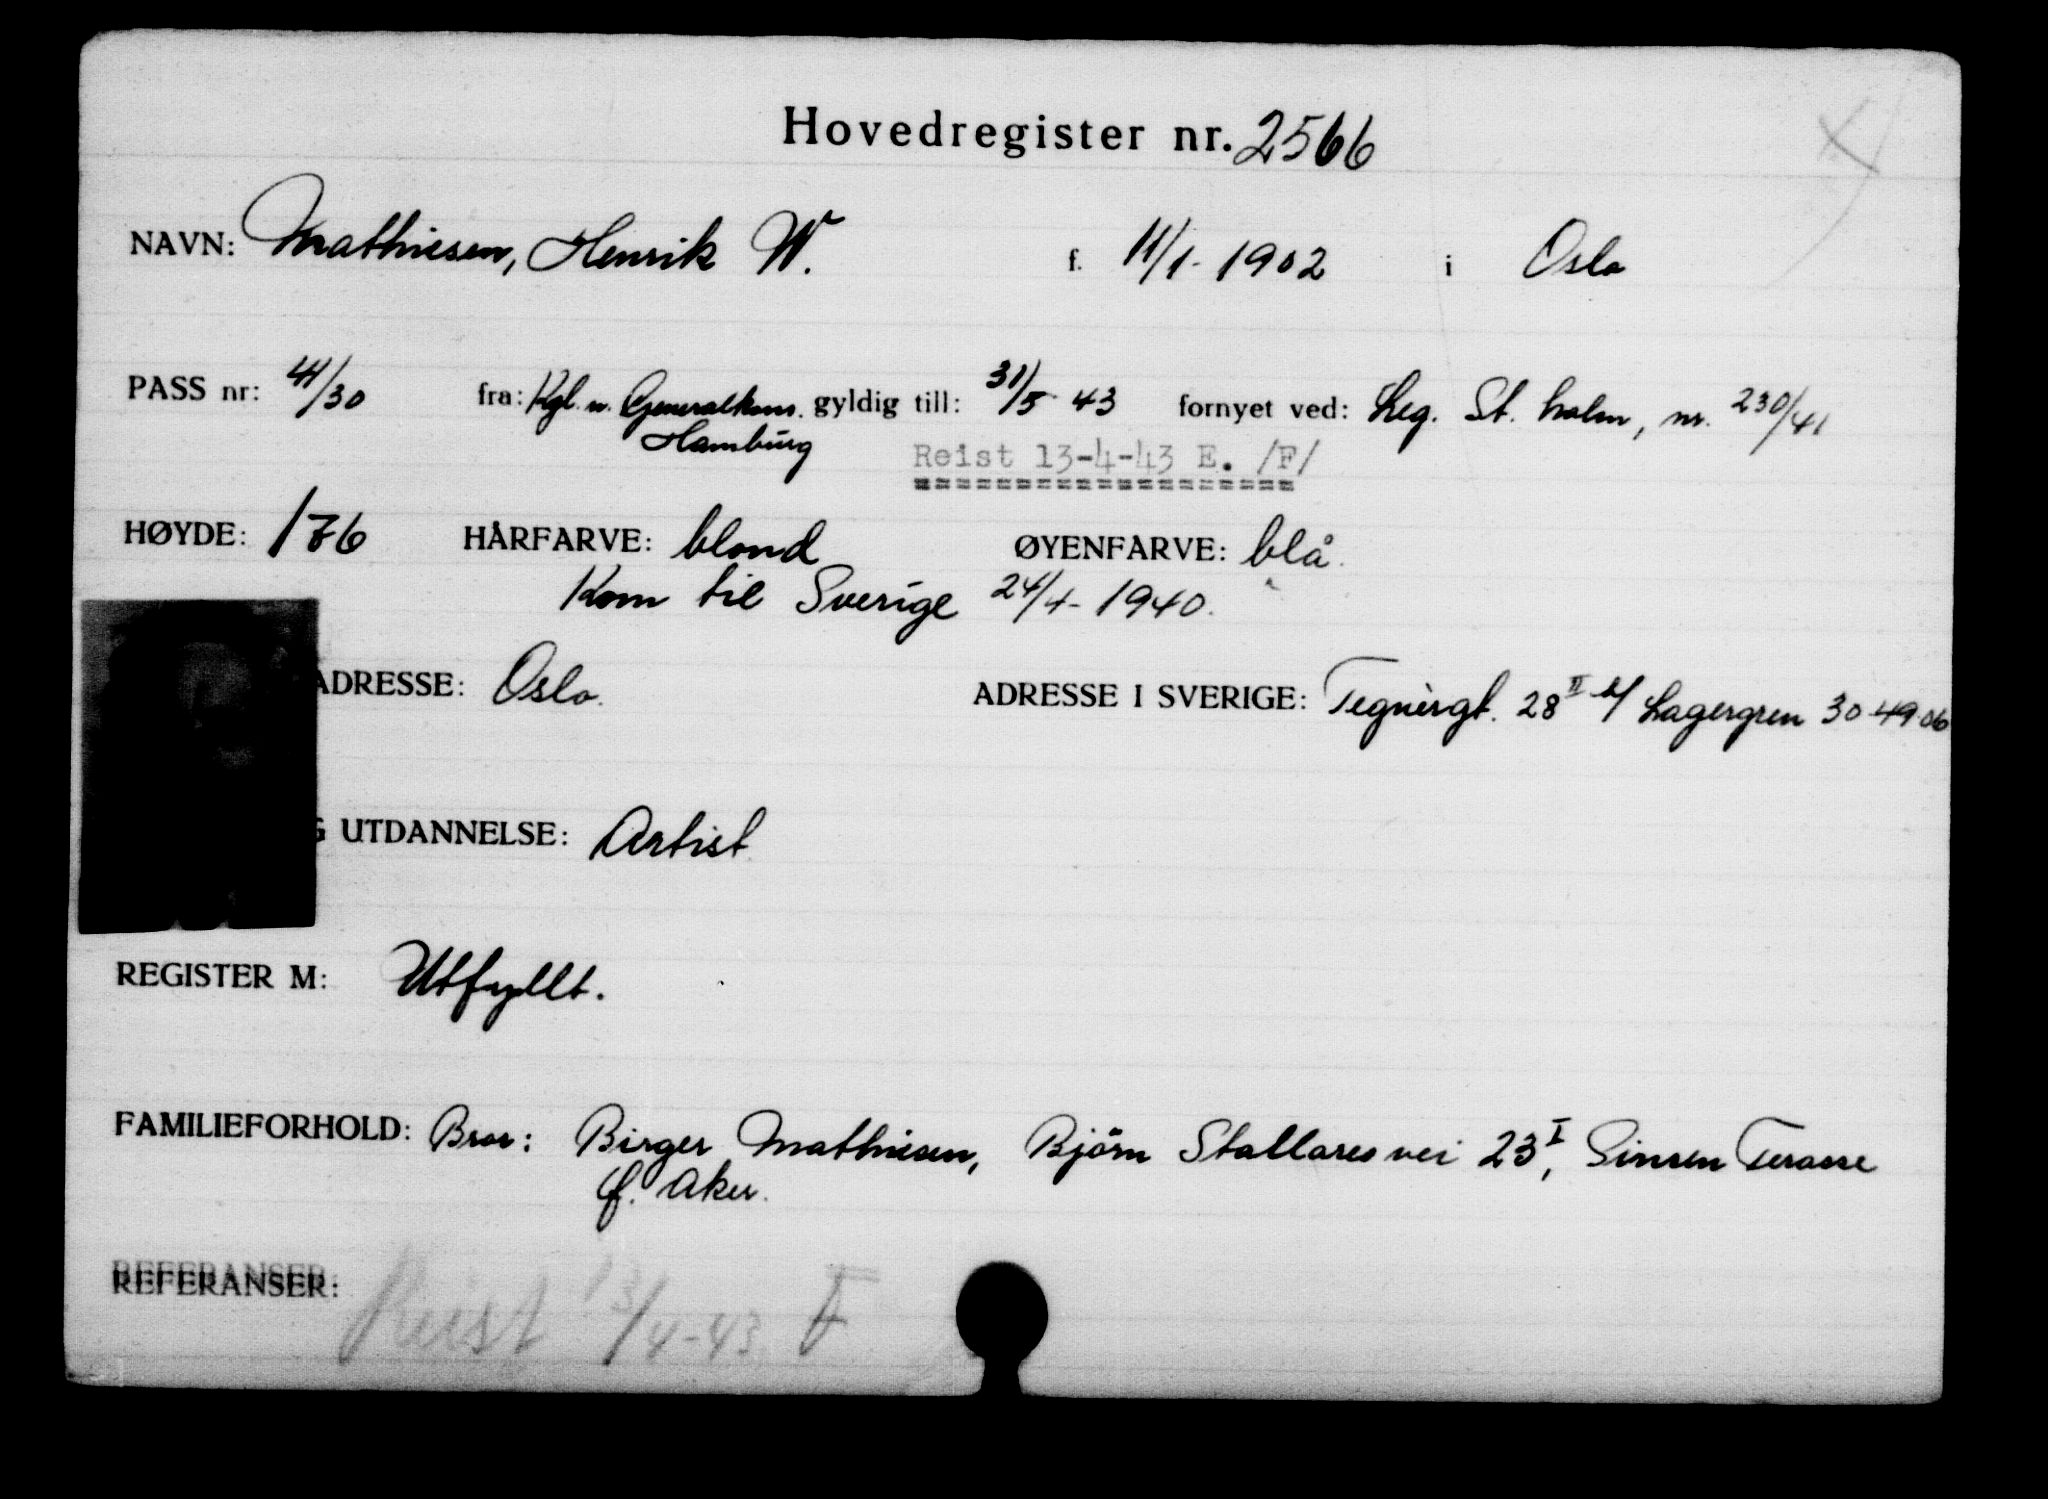 Hovedregister nr. 2566
NAVN: Mathiesen, Henrik W. f. 11/1-1902 i Oslo
PASS nr: 41/30 fra: Kgl. n. Generalkons. gyldig till: 31/5 43 fornyet ved: Leg. St. holm, nr. 230/41
Hamburg
Reist 13-4-43 E. /F/
HØYDE: 176 HÅRFARVE: blond ØYENFARVE: blå.
Kom til Sverige 24/4-1940.
ADRESSE: Oslo. ADRESSE I SVERIGE: Tegnérgt. 28 II b/ Lagergren 30 49 06
G UTDANNELSE: Artist
REGISTER M: Utfyllt.
FAMILIEFORHOLD: Bror: Birger Mathiesen, Björn Stallares vei 23 I, Sinsen Terasse
f. Aker.
REFERANSER:
Reist 13/4-43 F